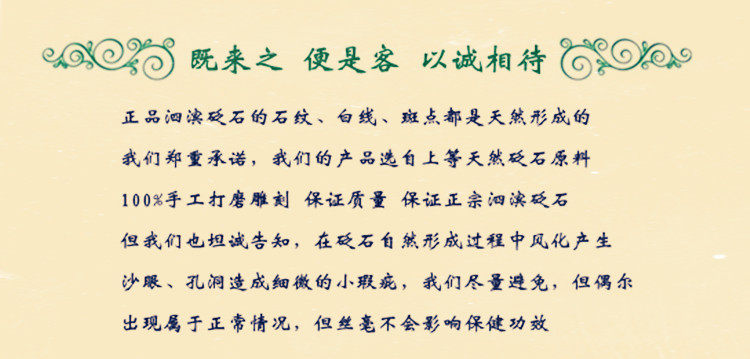 既来之 便是客 以诚相待
正品泗滨砭石的石纹、白线、斑点都是天然形成的
我们郑重承诺，我们的产品选自上等天然砭石原料
100%手工打磨雕刻 保证质量 保证正宗泗滨砭石
但我们也坦诚告知，在砭石自然形成过程中风化产生
沙眼、孔洞造成细微的小瑕疵，我们尽量避免，但偶尔
出现属于正常情况，但丝毫不会影响保健功效